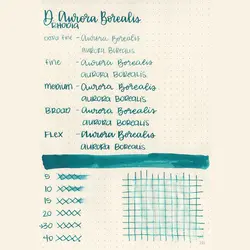 D. Aurora Borealis
RHODIA
EXTRA FINE - Aurora Borealis
AURORA BOREALIS
FINE - Aurora Borealis
AURORA BOREALIS
MEDIUM - Aurora Borealis
AURORA BOREALIS
BROAD - Aurora Borealis
AURORA BOREALIS
FLEX - Aurora Borealis
AURORA BOREALIS
5 XXXXX
10 XXXXX
15 XXXXX
20 XXXXX
+30 XXXXX
40 XXXXX